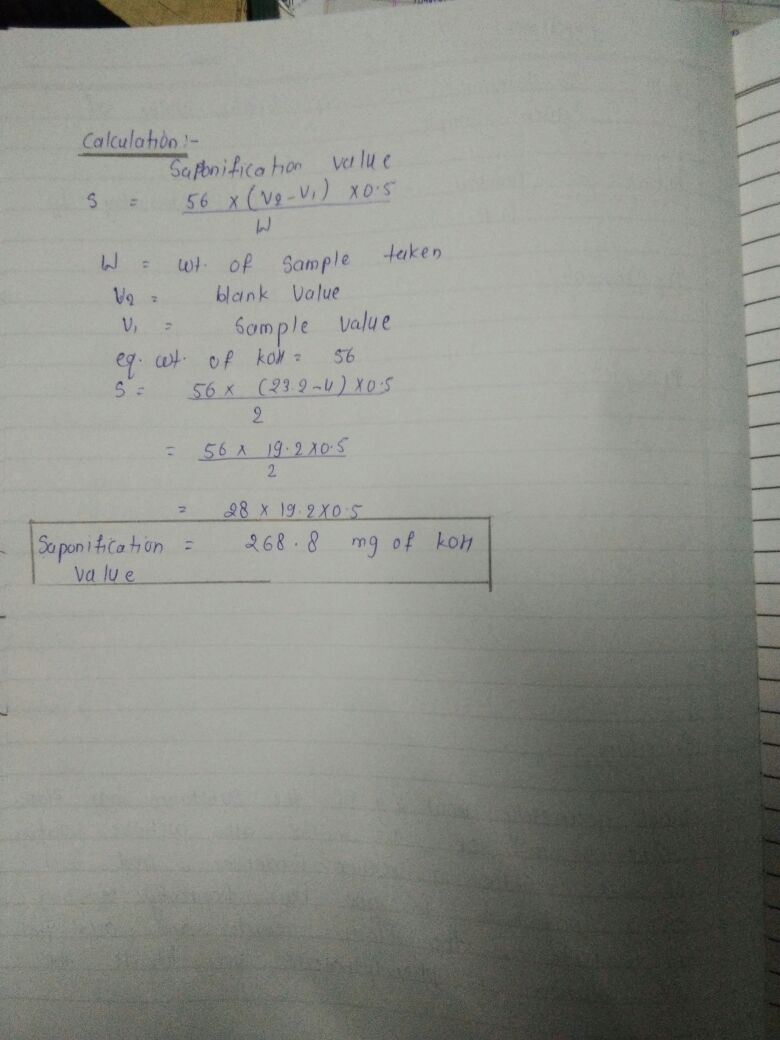 Calculation :-
Saponification value
S = 56 x (V2 - V1) x0.5
W
W = wt. of sample taken
V2 = blank value
V1 = Sample value
eq. wt. of KOH = 56
S = 56 x (23.2-4) x0.5
2
= 56 x 19.2x0.5
2
= 28 x 19.2x0.5
Saponification = 268.8 mg of KOH
value